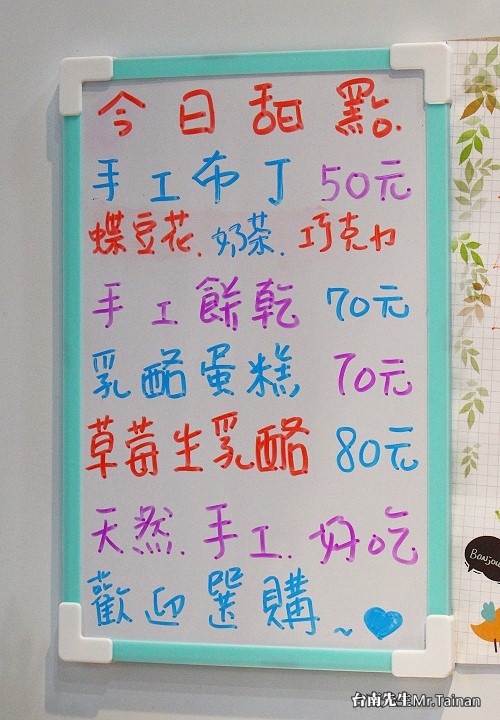 今日甜點.
手工布丁 50元
蝶豆花.奶茶.巧克力
手工餅乾 70元
乳酪蛋糕 70元
草莓生乳酪 80元
天然.手工.好吃
歡迎選購~
Bonjou
台南先生Mr.Tainan